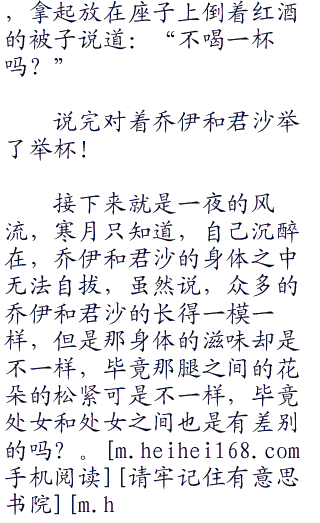 ，拿起放在座子上倒着红酒
的被子说道：“不喝一杯
吗？”
说完对着乔伊和君沙举
了举杯！
接下来就是一夜的风
流，寒月只知道，自己沉醉
在，乔伊和君沙的身体之中
无法自拔，虽然说，众多的
乔伊和君沙的长得一模一
样，但是那身体的滋味却是
不一样，毕竟那腿之间的花
朵的松紧可是不一样，毕竟
处女和处女之间也是有差别
的吗？。[m.heihei168.com
手机阅读][请牢记住有意思
书院][m.h